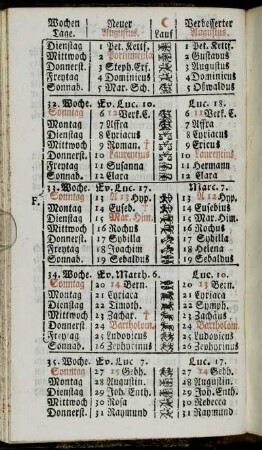 Wochen Neuer ☾ Verbesserter
Tage. Augustus. Lauf Augustus.
Dienstag 1 Pet. Kettf. 1 Pet. Kettf.
Mittwoch 2 Portiuncula 2 Gustavus
Donnerst. 3 Steph. Erf. 3 Augustus
Freytag 4 Dominicus 4 Dominicus
Sonnab. 5 Mar. Sch. 5 Oßwaldus
32. Woche. Ev. Luc. 10. Luc. 18.
Sonntag 6 12 Verk. C. 6 12 Verk. C.
Montag 7 Affra 7 Affra
Dienstag 8 Cyriacus 8 Cyriacus
Mittwoch 9 Roman. † 9 Ericus
Donnerst. 10 Laurentius 10 Laurentius
Freytag 11 Susanna 11 Hermann
Sonnab. 12 Clara 12 Clara
33. Woche. Ev. Luc. 17. Marc. 7.
F. Sonntag 13 A 13 Hyp. 13 A 12 Hyp.
Montag 14 Euseb. † 14 Eusebius
Dienstag 15 Mar. Him. 15 Mar. Him.
Mittwoch 16 Rochus 16 Rochus
Donnerst. 17 Sybilla 17 Sybilla
Freytag 18 Joachim 18 Helena
Sonnab. 19 Sebaldus 19 Sebaldus
34. Woche Ev. Matth. 6. Luc. 10.
Sonntag 20 14 Bern. 20 13 Bern.
Montag 21 Cyriaca 21 Cyriaca
Dienstag 22 Timoth. 22 Symph.
Mittwoch 23 Zachar. † 23 Zachäus
Donnerst. 24 Bartholom. 24 Bartholom.
Freytag 25 Ludovicus 25 Ludovicus
Sonnab. 26 Zephyrinus 26 Zephyrinus
35. Woche. Ev. Luc. 7. Luc. 17.
Sonntag 27 15 Gebh. 27 14 Gebh.
Montag 28 Augustin. 28 Augustin.
Dienstag 29 Joh. Enth. 29 Joh. Enth.
Mittwoch 30 Rosa 30 Rebecca
Donnerst. 31 Raymund 31 Raymund